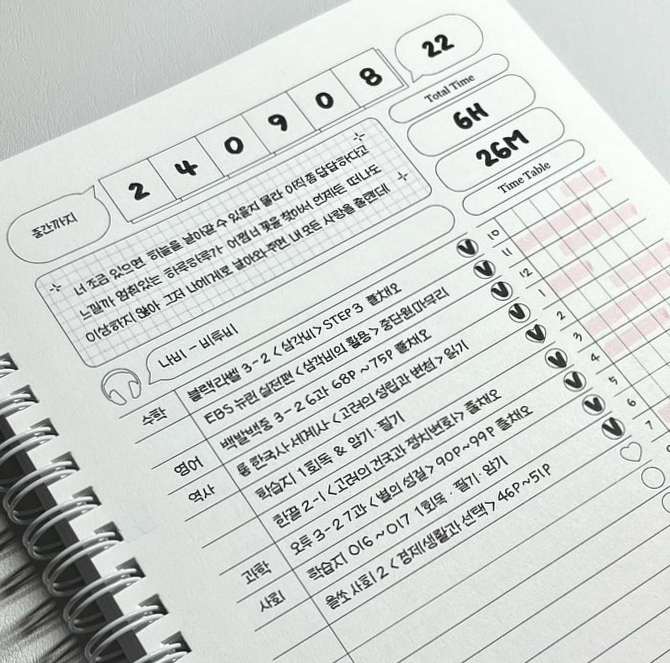 중간까지
240908
22
Total Time
6H
26M
Time Table
너 조금 있으면 하늘을 날아갈 수 있을지 몰라 아직 좀 답답하다고
느낄까 멈춰있는 하루하루가 어쩜 너 꽃을 찾아서 언제든 떠나도
이상하지 않아 그저 나에게로 날아와 주면 내 모든 사랑을 줄텐데
나비 - 비투비
수학 블랙라벨 3-2 <삼각비> STEP 3 풀채오
EBS 뉴런 실전편 <삼각비의 활용> 중단원 마무리
영어 백발백중 3-2 6과 68P ~ 75P 풀채오
역사 통 한국사·세계사 <고려의 성립과 변천> 읽기
학습지 1회독 & 암기·필기
한끝 2-1 <고려의 건국과 정치변화> 풀채오
과학 오투 3-2 7과 <별의 성질> 90P~99P 풀채오
사회 학습지 016 ~ 017 1회독·필기·암기
올쏘 사회 2 <경제생활과 선택> 46P~51P
10
11
12
1
2
3
4
5
6
7